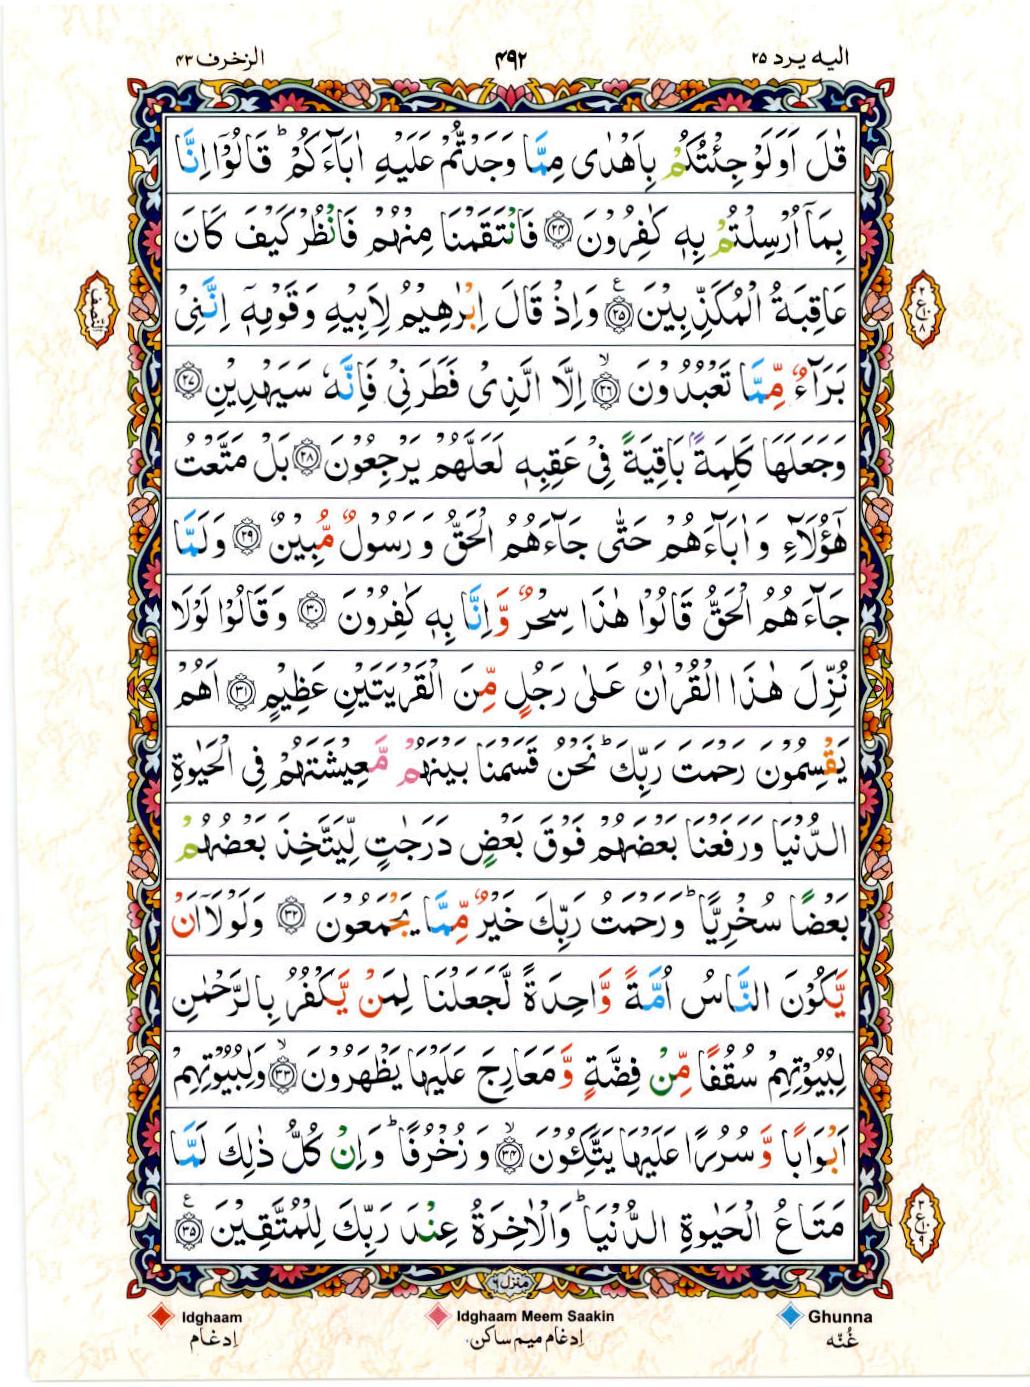 الیه یرد ۲۵
۴۹۲
الزخرف ۴۳
قٰلَ اَوَلَوْ جِئْتُكُمْ بِاَهْدٰى مِمَّا وَجَدْتُّمْ عَلَيْهِ اٰبَآءَكُمْ ؕ قَالُوْۤا اِنَّا
بِمَاۤ اُرْسِلْتُمْ بِهٖ كٰفِرُوْنَ ۝۲۴ فَانْتَقَمْنَا مِنْهُمْ فَانْظُرْ كَيْفَ كَانَ
عَاقِبَةُ الْمُكَذِّبِيْنَ ۝۲۵ ع وَاِذْ قَالَ اِبْرٰهِيْمُ لِاَبِيْهِ وَقَوْمِهٖۤ اِنَّنِیْ
بَرَآءٌ مِّمَّا تَعْبُدُوْنَ ۝۲۶ۙ اِلَّا الَّذِیْ فَطَرَنِیْ فَاِنَّهٗ سَيَهْدِيْنِ ۝۲۷
وَجَعَلَهَا كَلِمَةًۢ بَاقِيَةً فِیْ عَقِبِهٖ لَعَلَّهُمْ يَرْجِعُوْنَ ۝۲۸ بَلْ مَتَّعْتُ
هٰۤؤُلَآءِ وَاٰبَآءَهُمْ حَتّٰى جَآءَهُمُ الْحَقُّ وَرَسُوْلٌ مُّبِيْنٌ ۝۲۹ وَلَمَّا
جَآءَهُمُ الْحَقُّ قَالُوْا هٰذَا سِحْرٌ وَّاِنَّا بِهٖ كٰفِرُوْنَ ۝۳۰ وَقَالُوْا لَوْلَا
نُزِّلَ هٰذَا الْقُرْاٰنُ عَلٰى رَجُلٍ مِّنَ الْقَرْيَتَيْنِ عَظِيْمٍ ۝۳۱ اَهُمْ
يَقْسِمُوْنَ رَحْمَتَ رَبِّكَ ؕ نَحْنُ قَسَمْنَا بَيْنَهُمْ مَّعِيْشَتَهُمْ فِی الْحَيٰوةِ
الدُّنْيَا وَرَفَعْنَا بَعْضَهُمْ فَوْقَ بَعْضٍ دَرَجٰتٍ لِّيَتَّخِذَ بَعْضُهُمْ
بَعْضًا سُخْرِيًّا ؕ وَرَحْمَتُ رَبِّكَ خَيْرٌ مِّمَّا يَجْمَعُوْنَ ۝۳۲ وَلَوْلَاۤ اَنْ
يَّكُوْنَ النَّاسُ اُمَّةً وَّاحِدَةً لَّجَعَلْنَا لِمَنْ يَّكْفُرُ بِالرَّحْمٰنِ
لِبُيُوْتِهِمْ سُقُفًا مِّنْ فِضَّةٍ وَّمَعَارِجَ عَلَيْهَا يَظْهَرُوْنَ ۝۳۳ۙ وَلِبُيُوْتِهِمْ
اَبْوَابًا وَّسُرُرًا عَلَيْهَا يَتَّكِئُوْنَ ۝۳۴ۙ وَزُخْرُفًا ؕ وَاِنْ كُلُّ ذٰلِكَ لَمَّا
مَتَاعُ الْحَيٰوةِ الدُّنْيَا ؕ وَالْاٰخِرَةُ عِنْدَ رَبِّكَ لِلْمُتَّقِيْنَ ۝۳۵ ع
النصف
منزل ۶
Idghaam
اِدغام
Idghaam Meem Saakin
اِدغام میم ساکن
Ghunna
غُنّه